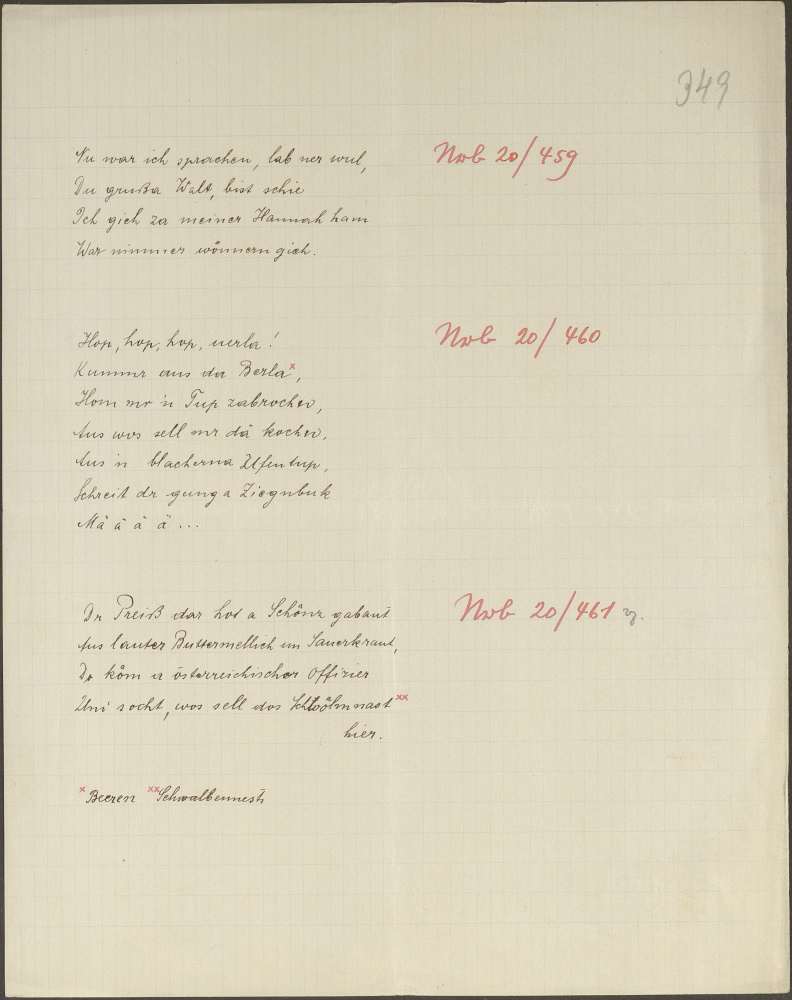 349
Nu war ich sprachen, lab ner wul,
Nwb 20/459
Du grußa Walt, bist schie
Ich gieh za meiner Hannah ham
War nimmer wönnern gieh.
Hop, hop, hop, uerla!
Nwb 20/460
Kummr aus da Berla x,
Hom mr 'n Tup zabrochn,
Aus wos sell mr dä kochn,
Aus 'n blacherna Ufentup,
Schreit dr gunga Ziegnbuk
Mä ä ä ä ...
Dr Preiß dar hot a Schönz gabaut
Nwb 20/461
Aus lauter Buttermellich un Sauerkraut,
Do kôm a österreichischer Offizier
Und socht, wos sell dos xx
hier.
x Beeren xx Schwalbennest